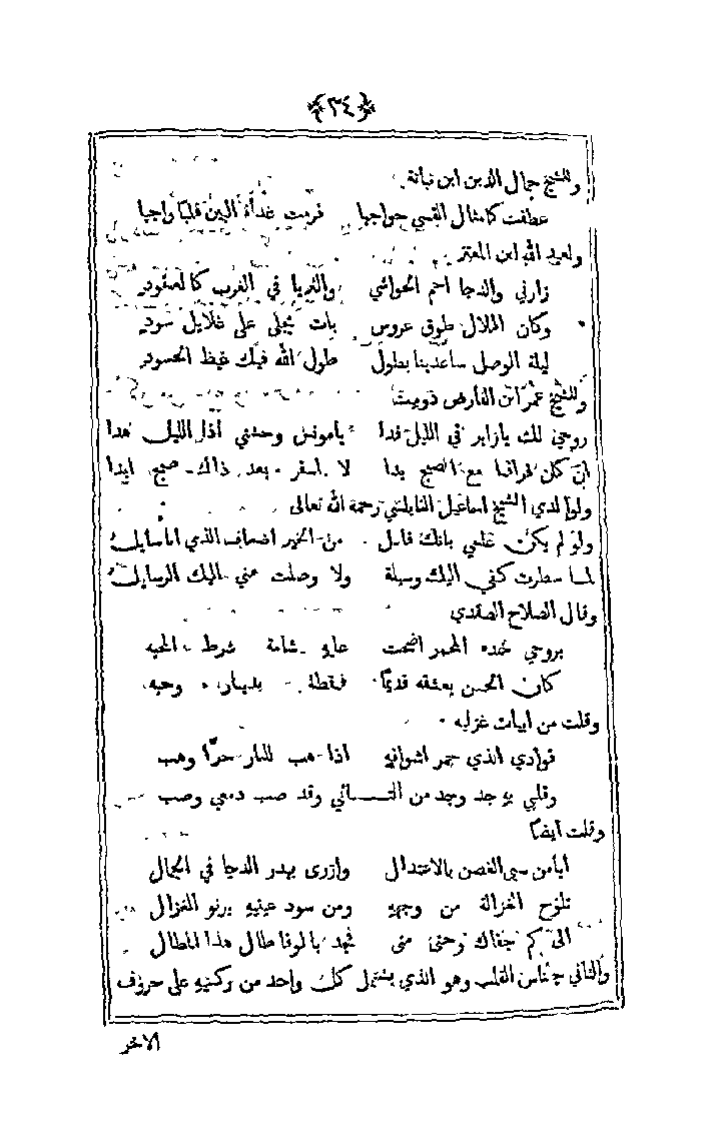 ﴿٣٤﴾
وللشيخ جمال الدين ابن نباتة
عطفت كامثال القسي حواجبا فرمت غداة البين قلبا واجبا
ولعبد الله ابن المعتز
زارني والدجا احم الحواشي والثريا في الغرب كالعنقود
وكان الهلال طوق عروس بات يجلى على غلايل سود
ليلة الوصل ساعدينا بطول طول الله فيك غيظ الحسود
وللشيخ عمر ابن الفارض دوبيت
روحي لك يا زاير في الليل فدا يا مونس وحشتي اذا الليل هدا
ان كان فراقنا مع الصبح بدا لا اسفر بعد ذاك صبح ابدا
ولوالدي الشيخ اسماعيل النابلسي رحمة الله تعالى
ولو لم يكن علمي بانك فاعل من الخير اضعاف الذي انا سايل
لما سطرت كفي اليك وسيلة ولا وصلت مني اليك الرسايل
وقال الصلاح الصفدي
بروحي خده المحمر اضحت عليه شامة شرط المحبه
كان الحسن يعشقه قديما فنقطة بدينار وحبه
وقلت من ابيات غزليه
فوادي الذي جمر اشواقه اذا هب للنار حرا وهب
وقلبي به جد وجد من التنـائي وقد صب دمعي وصب
وقلت ايضا
ايا من سبى الغصن بالاعتدال وازرى ببدر الدجا في الجمال
تلوح الغزالة من وجهه ومن سود عينيه يرنو الغزال
الى كم جفاك وحتى متى فجد بالوفا طال هذا المطال
والثاني جناس القلب وهو الذي يشتمل كل واحد من ركنيه على حروف
الاخر